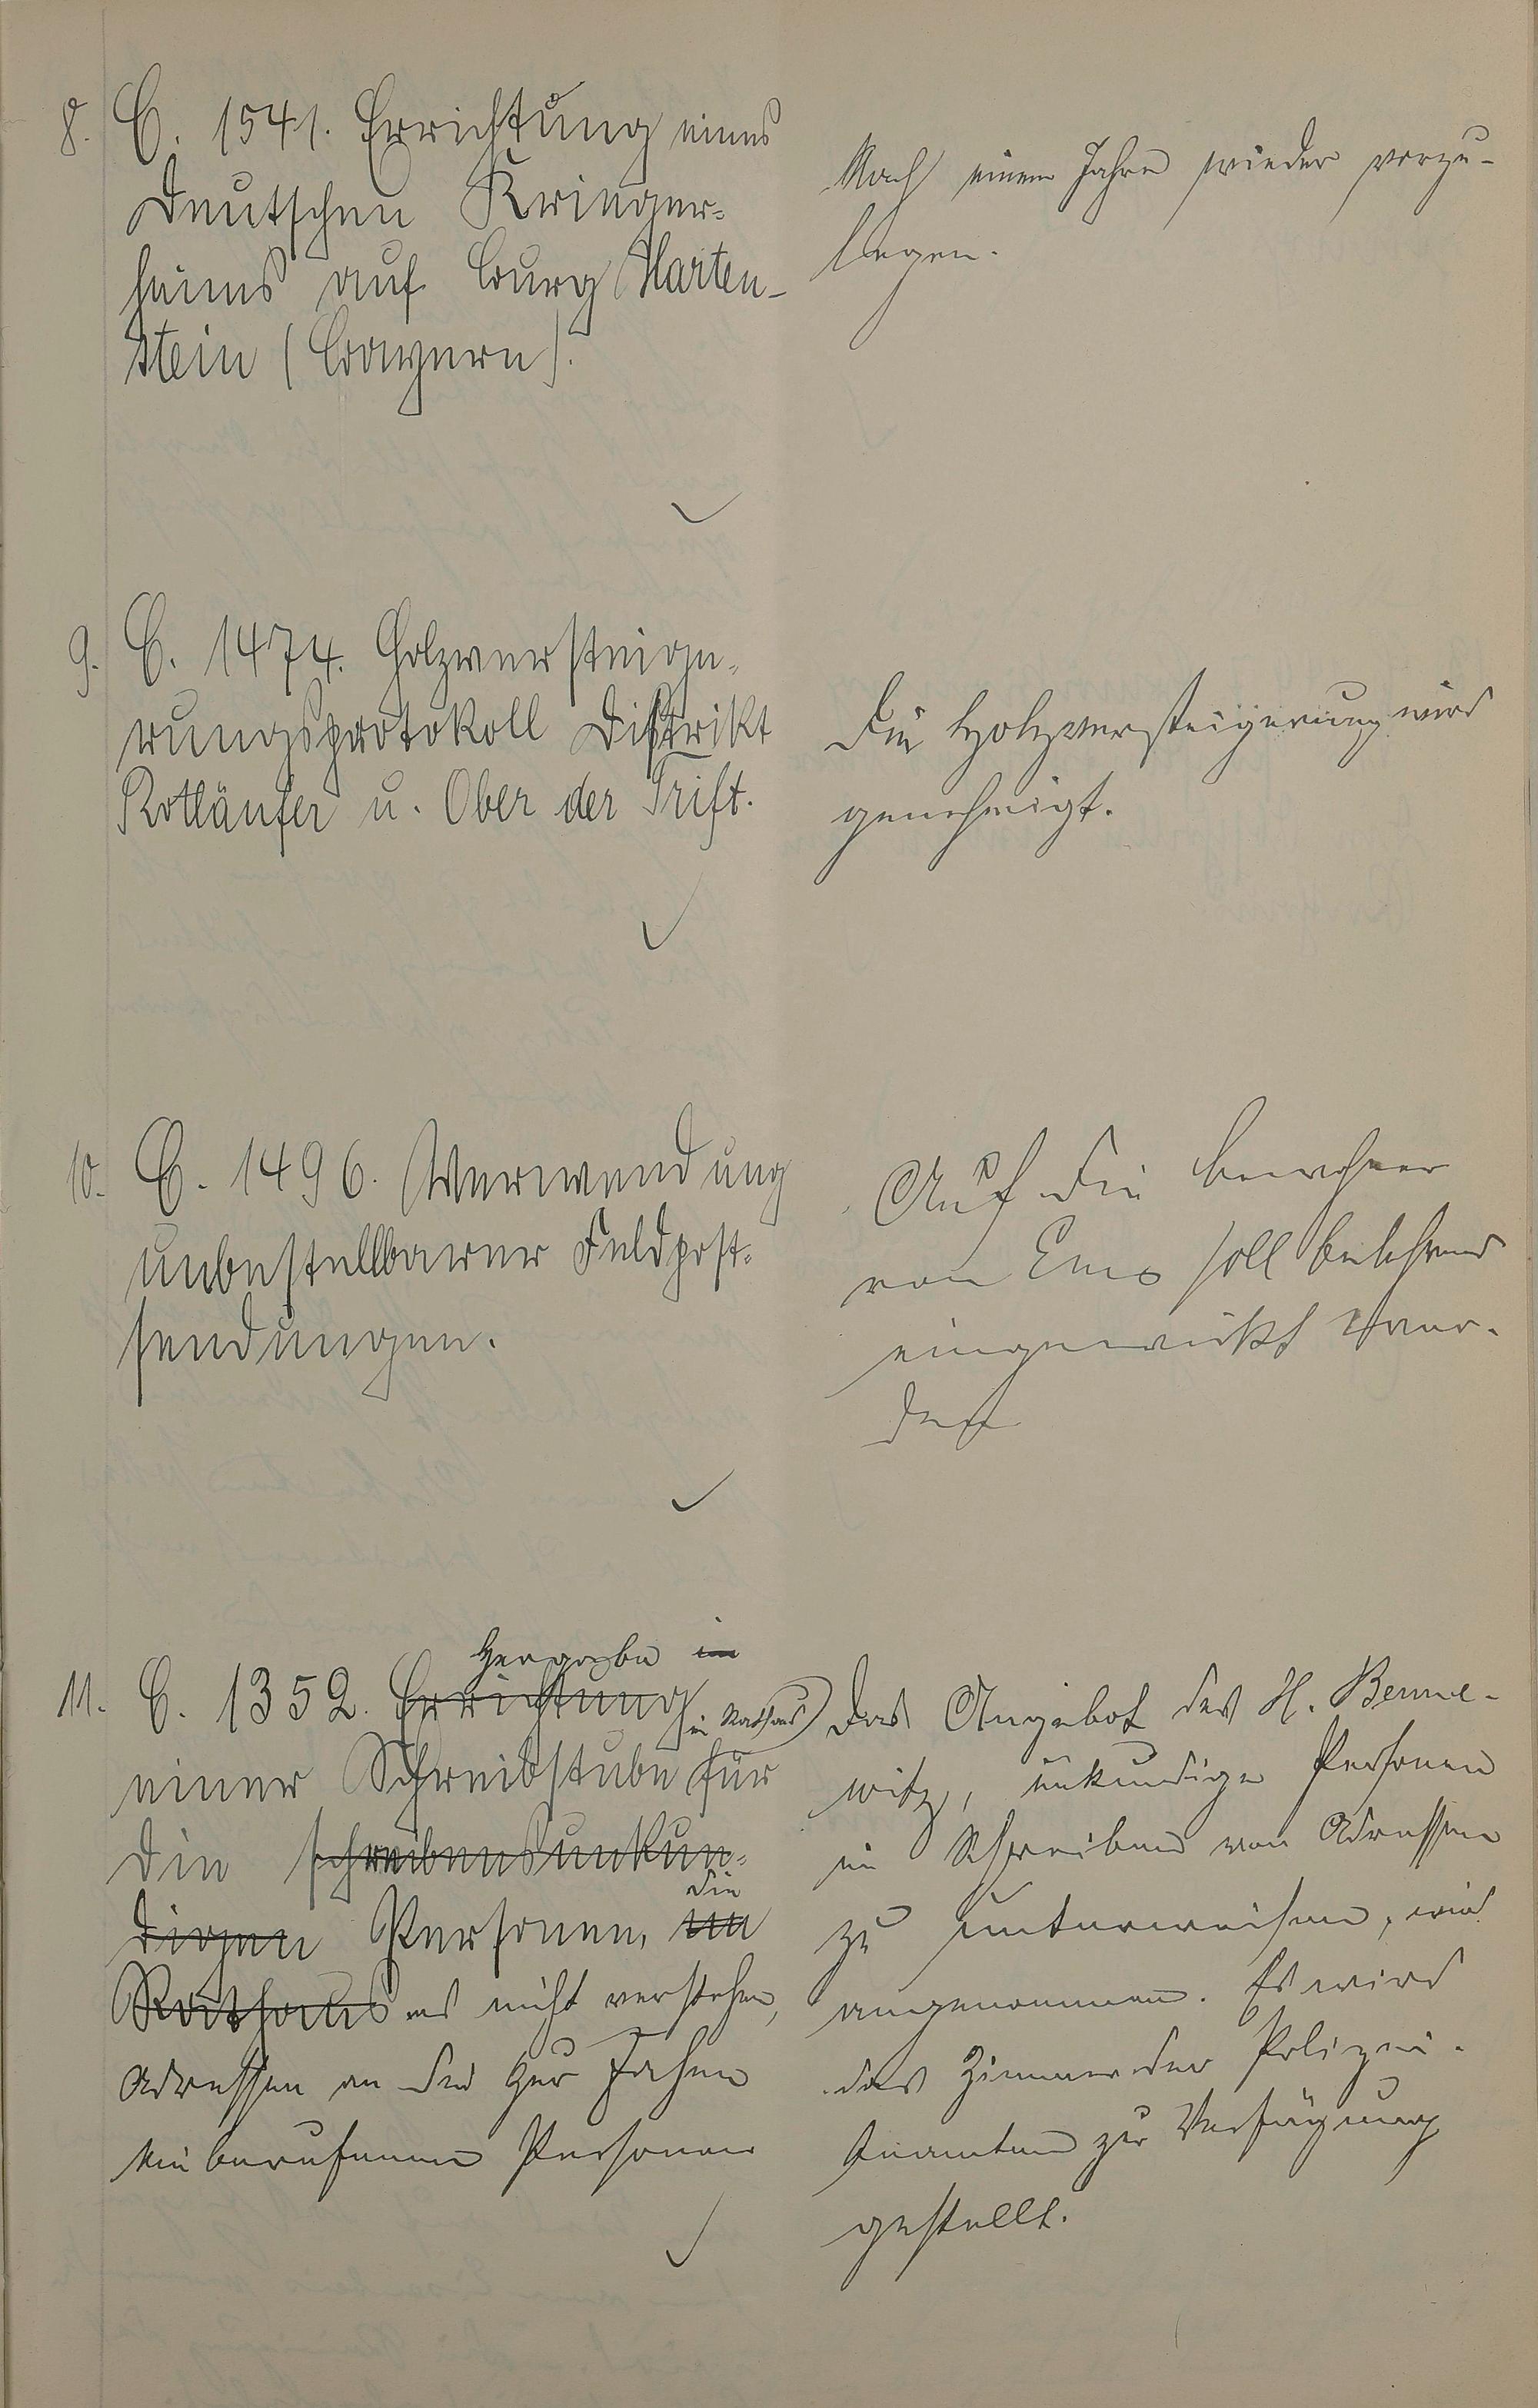 8. C. 1541. Errichtung eines
Deutschen Krieger-
heims auf Burg Harten-
stein (Bayern).
Nach einem Jahre wieder vorzu-
legen.
9. C. 1474. Holzversteige-
rungsprotokoll Distrikt
Rotläufer u. Ober der Trift.
Die Holzversteigerung wird
genehmigt.
10. C. 1496. Verwendung
unbestellbarer Feldpost-
sendungen.
Auf die Bewohner
von Ems soll belehrend
eingewirkt wer-
den
Hergabe im
11. C. 1352. Errichtung im Rathaus
einer Schreibstube für
die schreibensunkun-
digen Personen, die im
Rathaus es nicht verstehen,
Adressen an die zur Fahne
einberufenen Personen
Das Angebot des H. Benne-
witz, unkundige Personen
im Schreiben von Adressen
zu unterweisen, wird
angenommen. Es wird
das Zimmer der Polizei-
beamten zur Verfügung
gestellt.